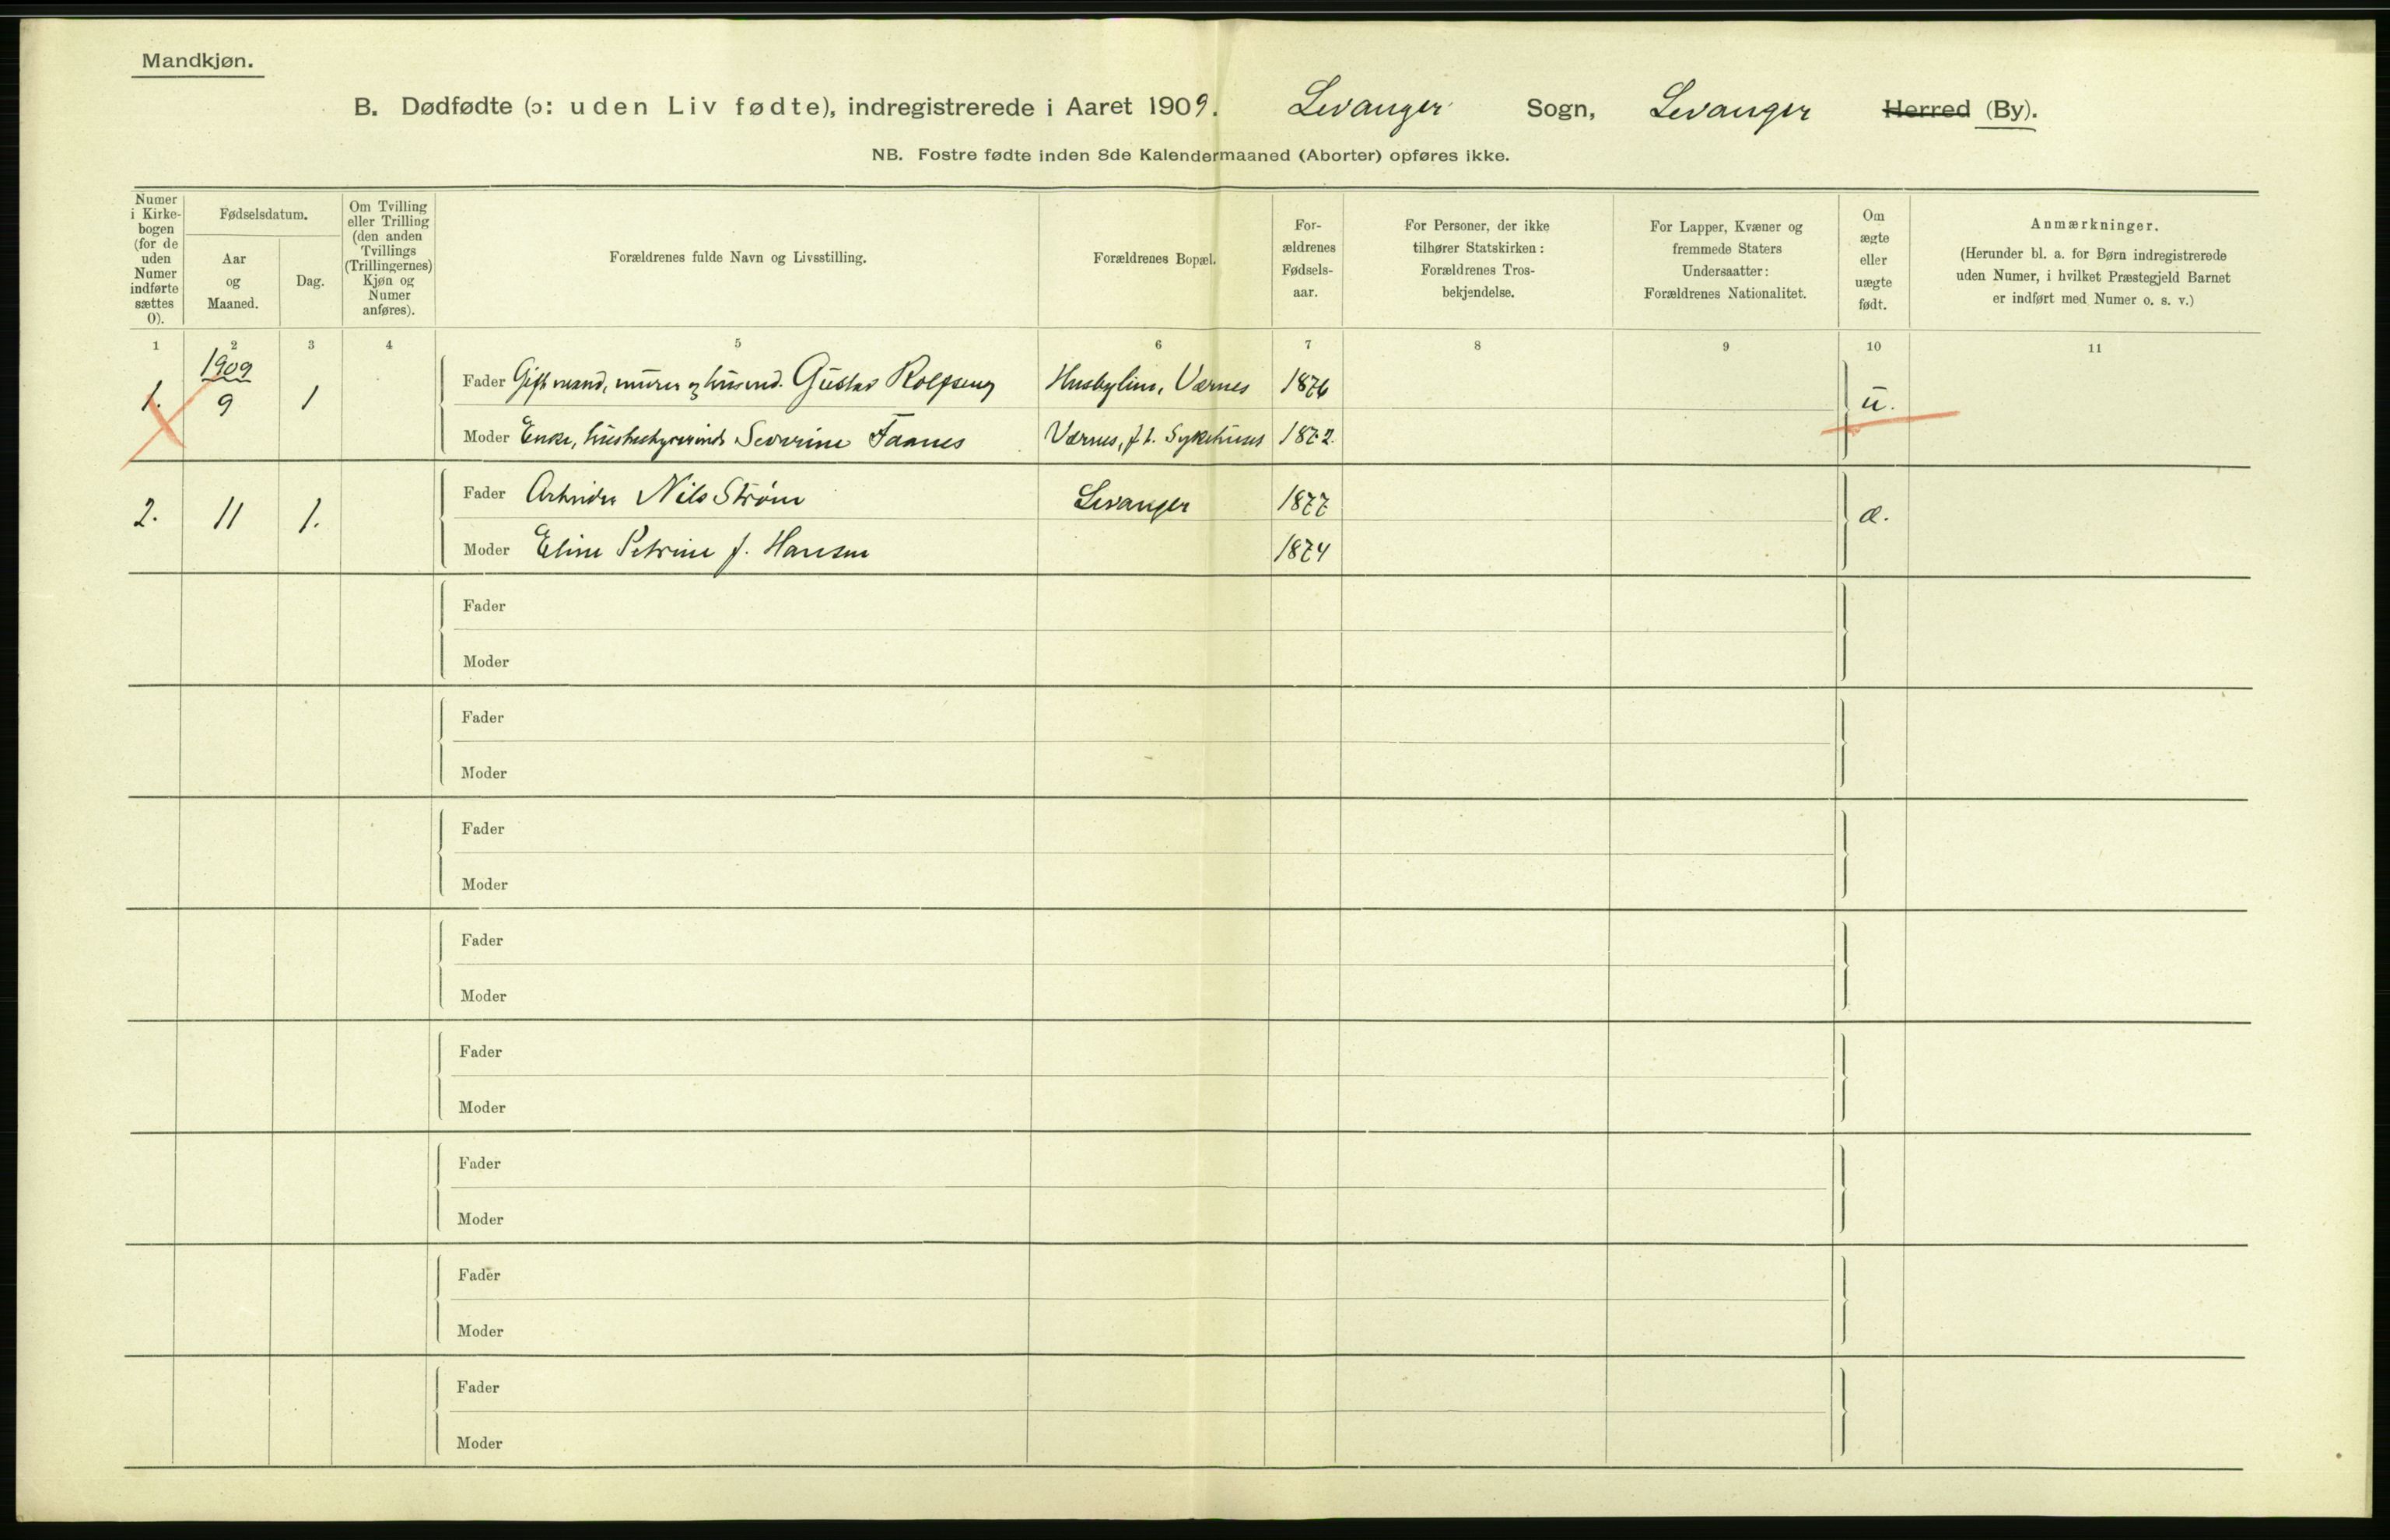 Mandkjøn.
B. Dødfødte (ɔ: uden Liv fødte), indregistrerede i Aaret 1909. Levanger Sogn, Levanger Herred (By).
NB. Fostre fødte inden 8de Kalendermaaned (Aborter) opføres ikke.
Numer i Kirke-bogen (for de uden Numer indførte sættes 0).
Fødselsdatum.
Aar og Maaned.
Dag.
Om Tvilling eller Trilling (den anden Tvillings (Trillingernes) Kjøn og Numer anføres).
Forældrenes fulde Navn og Livsstilling.
Forældrenes Bopæl.
For-ældrenes Fødsels-aar.
For Personer, der ikke tilhører Statskirken: Forældrenes Tros-bekjendelse.
For Lapper, Kvæner og fremmede Staters Undersaatter: Forældrenes Nationalitet.
Om ægte eller uægte født.
Anmærkninger.
(Herunder bl. a. for Børn indregistrerede uden Numer, i hvilket Præstegjeld Barnet er indført med Numer o. s. v.)
1 2 3 4 5 6 7 8 9 10 11
1909
1. 9 1 Fader Gift mand, murer og husmd. Gustav Rolfseng Husbylien, Værnes 1876 u.
Moder Enke, husbestyrerinde Severine Faanes Værnes, f. t. Sykehuset 1872.
2. 11 1. Fader Arbeider Nils Strøm Levanger 1877 æ.
Moder Eline Petrine f. Hansen 1874
Fader
Moder
Fader
Moder
Fader
Moder
Fader
Moder
Fader
Moder
Fader
Moder
Fader
Moder
Fader
Moder